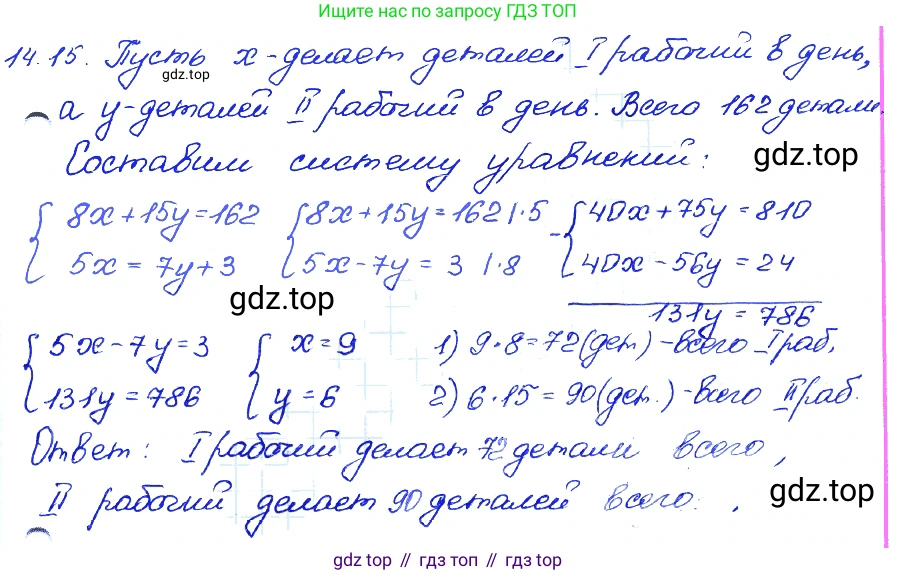 Ищите нас по запросу ГДЗ ТОП
14.15. Пусть x-делает деталей I рабочий в день,
gdz.top
а y-деталей II рабочий в день. Всего 162 детали.
Составим систему уравнений:
gdz.top
8x+15y=162 8x+15y=162 |·5 - 40x+75y=810
5x=7y+3 5x-7y=3 |·8 40x-56y=24
gdz.top
131y=786
5x-7y=3 x=9 1) 9·8=72(дет) -всего I раб.
131y=786 y=6 2) 6·15=90(дет.) -всего II раб.
Ответ: I рабочий делает 72 детали всего,
II рабочий делает 90 деталей всего.
gdz.top
gdz.top // гдз топ // gdz.top